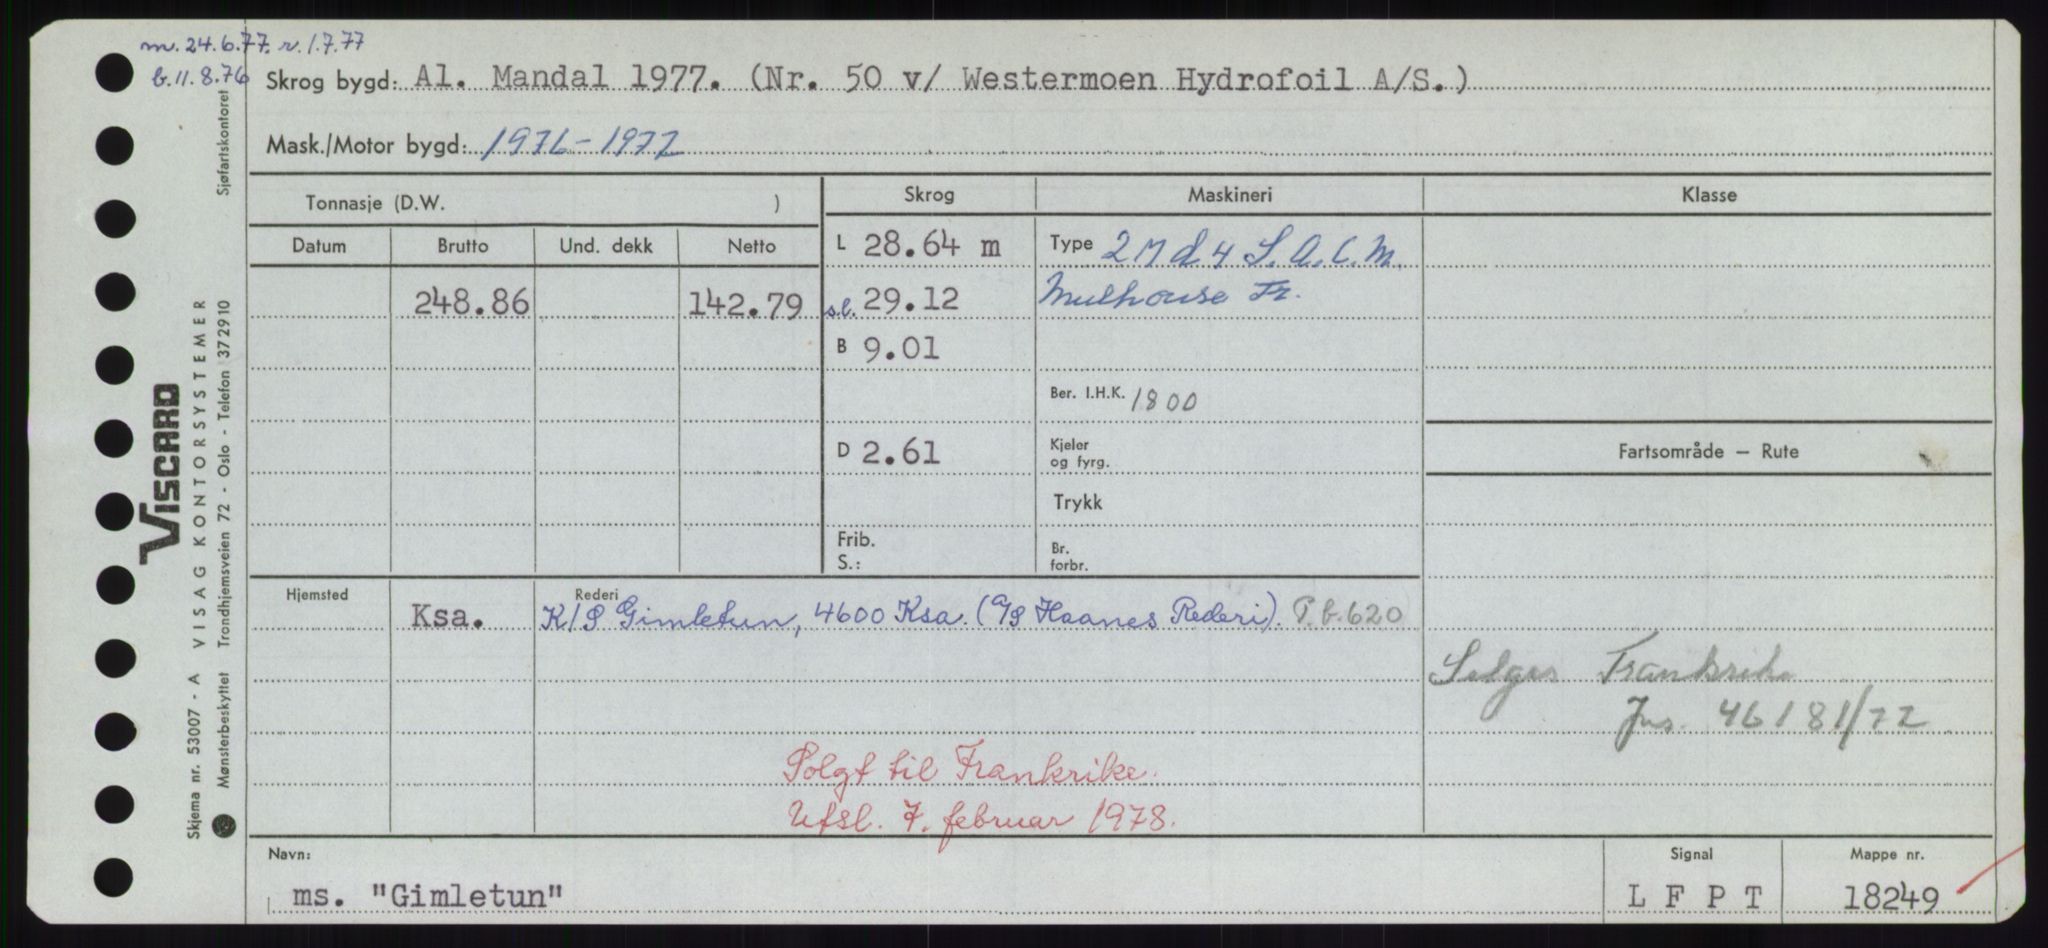 m. 24.6.77. r. 1.7.77
b. 11.8.76
Skrog bygd: Al. Mandal 1977. (Nr. 50 v/ Westermoen Hydrofoil A/S.)
Mask./Motor bygd: 1976-1977
Tonnasje (D.W. )
Skrog Maskineri Klasse
Datum Brutto Und. dekk Netto
L 28.64 m
Type 2 M d 4 S.A.C.M.
248.86 142.79
s.l. 29.12
Mulhouse Fr.
B 9.01
Ber. I.H.K. 1800
D 2.61
Kjeler
og fyrg.
Fartsområde — Rute
Trykk
Frib.
S.:
Br.
forbr.
Hjemsted Rederi
Ksa. K/S Gimletun, 4600 Ksa. (A/S Haanes Rederi). P.b. 620
Selges Frankrike
Jns. 46181/77
Solgt til Frankrike.
Utsl. 7. februar 1978.
Navn: Signal Mappe nr.
ms. "Gimletun" L F P T 18249
VISCARD
Skjema nr. 53007 - A VISAG KONTORSYSTEMER
Mønsterbeskyttet Trondhjemsveien 72 - Oslo - Telefon 372910 Sjøfartskontoret